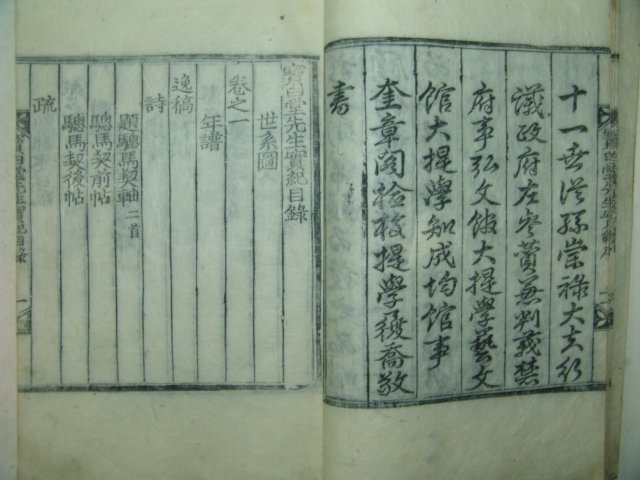 十一世從孫崇祿大夫行
議政府左參贊兼判義禁
府事弘文館大提學藝文
館大提學知成均館事
奎章閣檢校提學
書
寶白堂先生實紀目錄
世系圖
年譜
卷之一
逸稿
詩
題驄馬契軸二首
驄馬契前帖
驄馬契後帖
疏
寶白堂先生實紀目錄